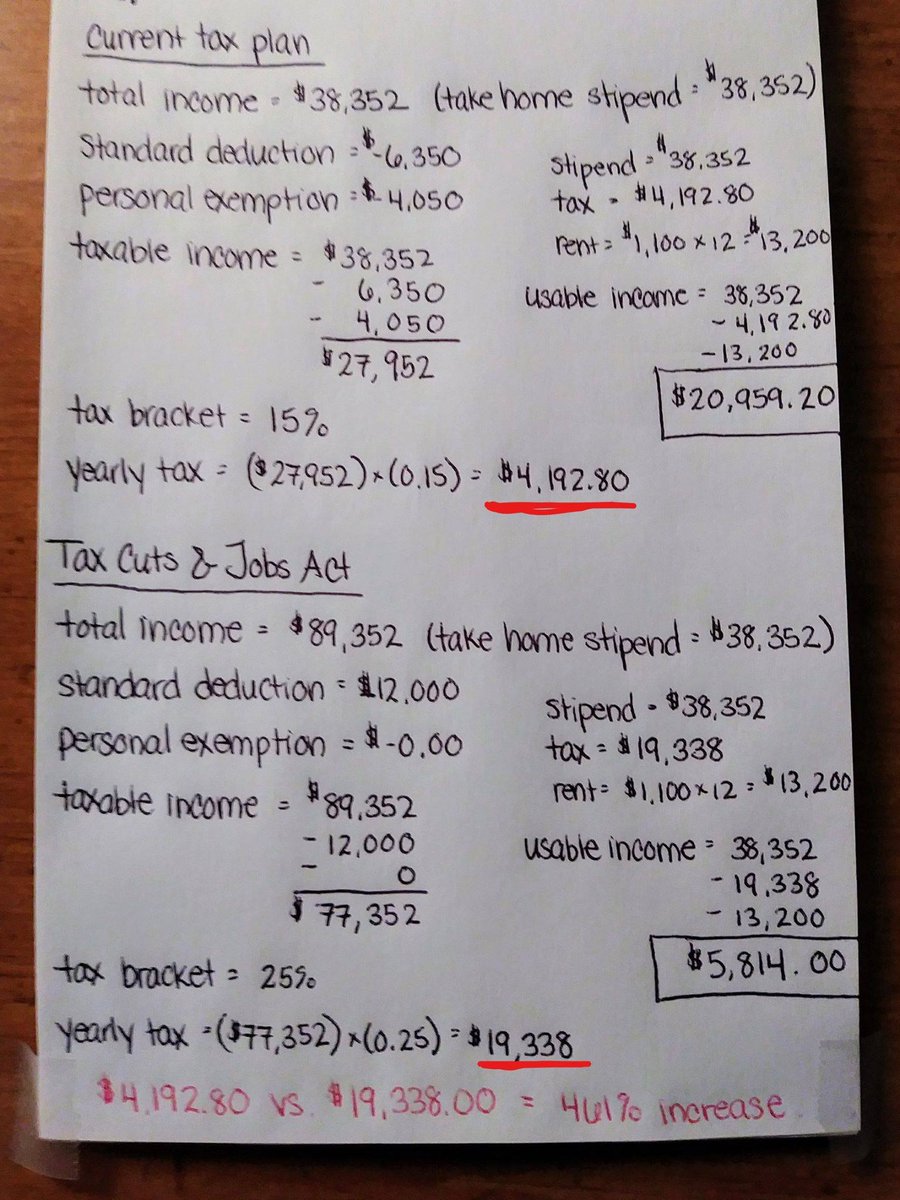 Current tax plan
total income = $38,352 (take home stipend = $38,352)
Standard deduction = $-6,350
personal exemption = $-4,050
taxable income = $38,352
- 6,350
- 4,050
$27,952
tax bracket = 15%
yearly tax = ($27,952)×(0.15) = $4,192.80
stipend = $38,352
tax = $4,192.80
rent = $1,100 × 12 = $13,200
usable income = 38,352
- 4,192.80
- 13,200
$20,959.20
Tax Cuts & Jobs Act
total income = $89,352 (take home stipend = $38,352)
standard deduction = $12,000
personal exemption = $-0.00
taxable income = $89,352
- 12,000
- 0
$77,352
tax bracket = 25%
yearly tax = ($77,352)×(0.25) = $19,338
stipend = $38,352
tax = $19,338
rent = $1,100 × 12 = $13,200
usable income = 38,352
- 19,338
- 13,200
$5,814.00
$4,192.80 vs. $19,338.00 = 461% increase